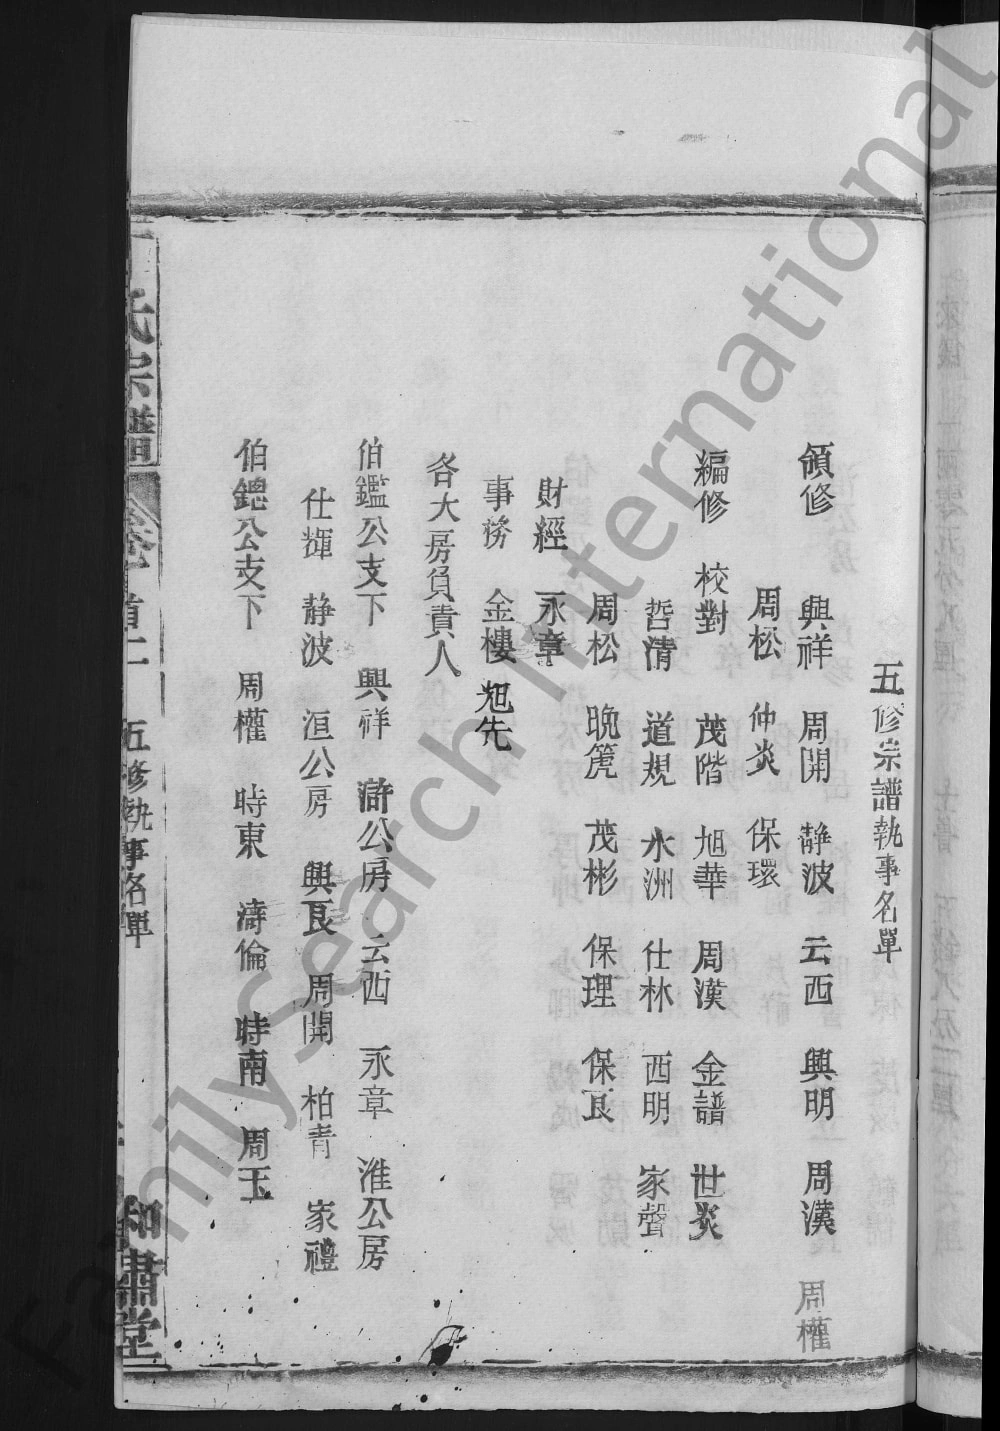 五修宗譜執事名單
領修 興祥 周開 靜波 云西 興明 周漢 周權
周松 仲炎 保環
編修 校對 茂階 旭華 周漢 金譜 世炎
哲清 道規 水洲 仕林 西明 家聲
周松 晚篪 茂彬 保理 保良
財經 永章
事務 金樓 旭先
各大房負責人
伯鑑公支下 興祥 澣公房 云西 永章 淮公房
仕輝 靜波 洹公房 興良 周開 柏青 家禮
伯鍶公支下 周權 時東 濤倫 時南 周玉
氏宗譜 卷首二 五修執事名單 和肅堂
FamilySearch International